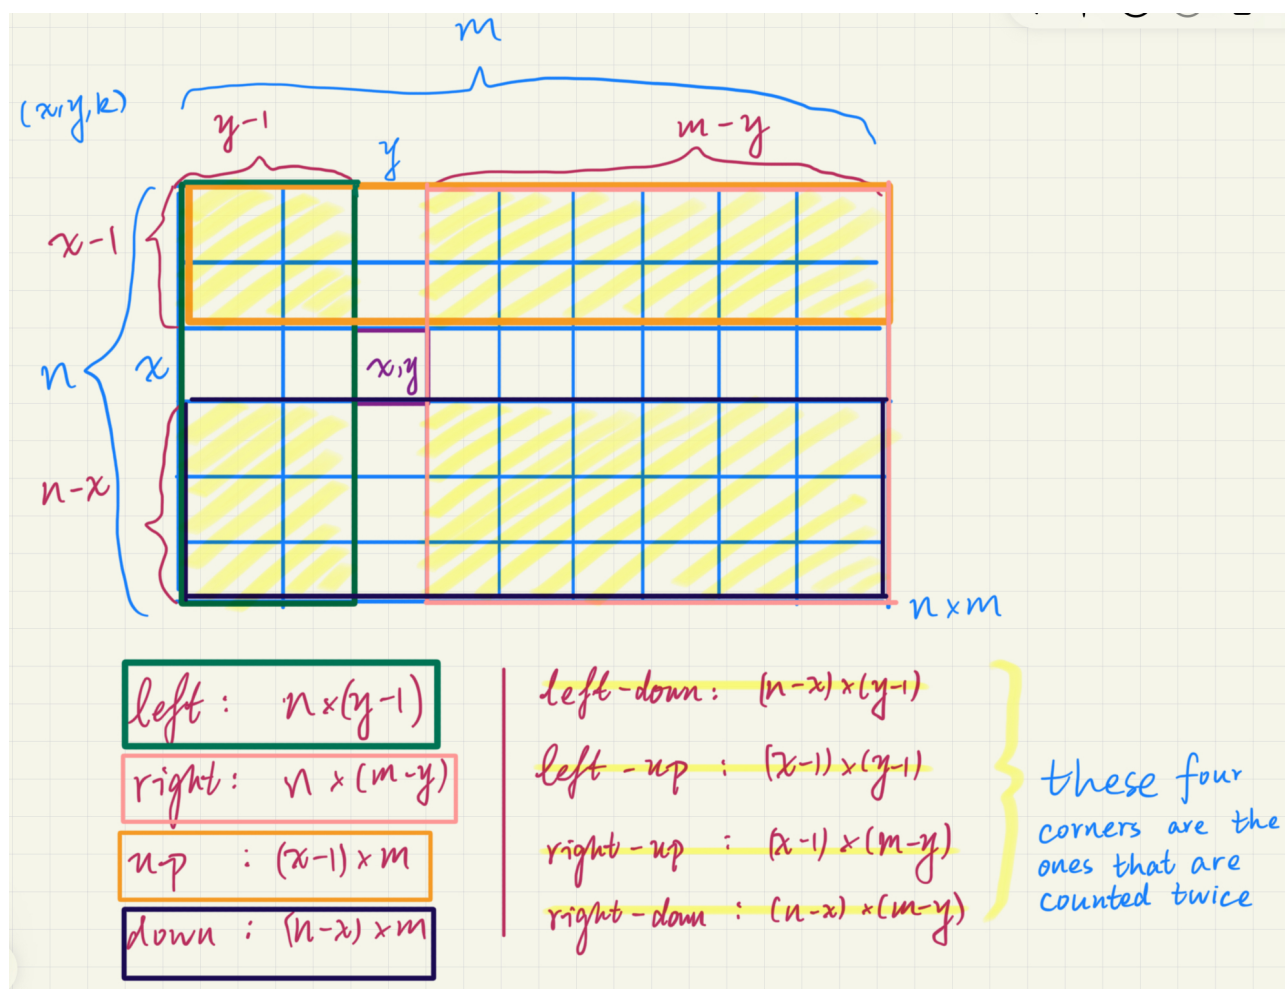 m
(x,y,k)
y-1
y
m-y
x-1
n
x
x,y
n-x
n×m
left: n×(y-1)
right: n×(m-y)
up : (x-1)×m
down : (n-x)×m
left-down: (n-x)×(y-1)
left-up : (x-1)×(y-1)
right-up : (x-1)×(m-y)
right-down : (n-x)×(m-y)
these four
corners are the
ones that are
counted twice